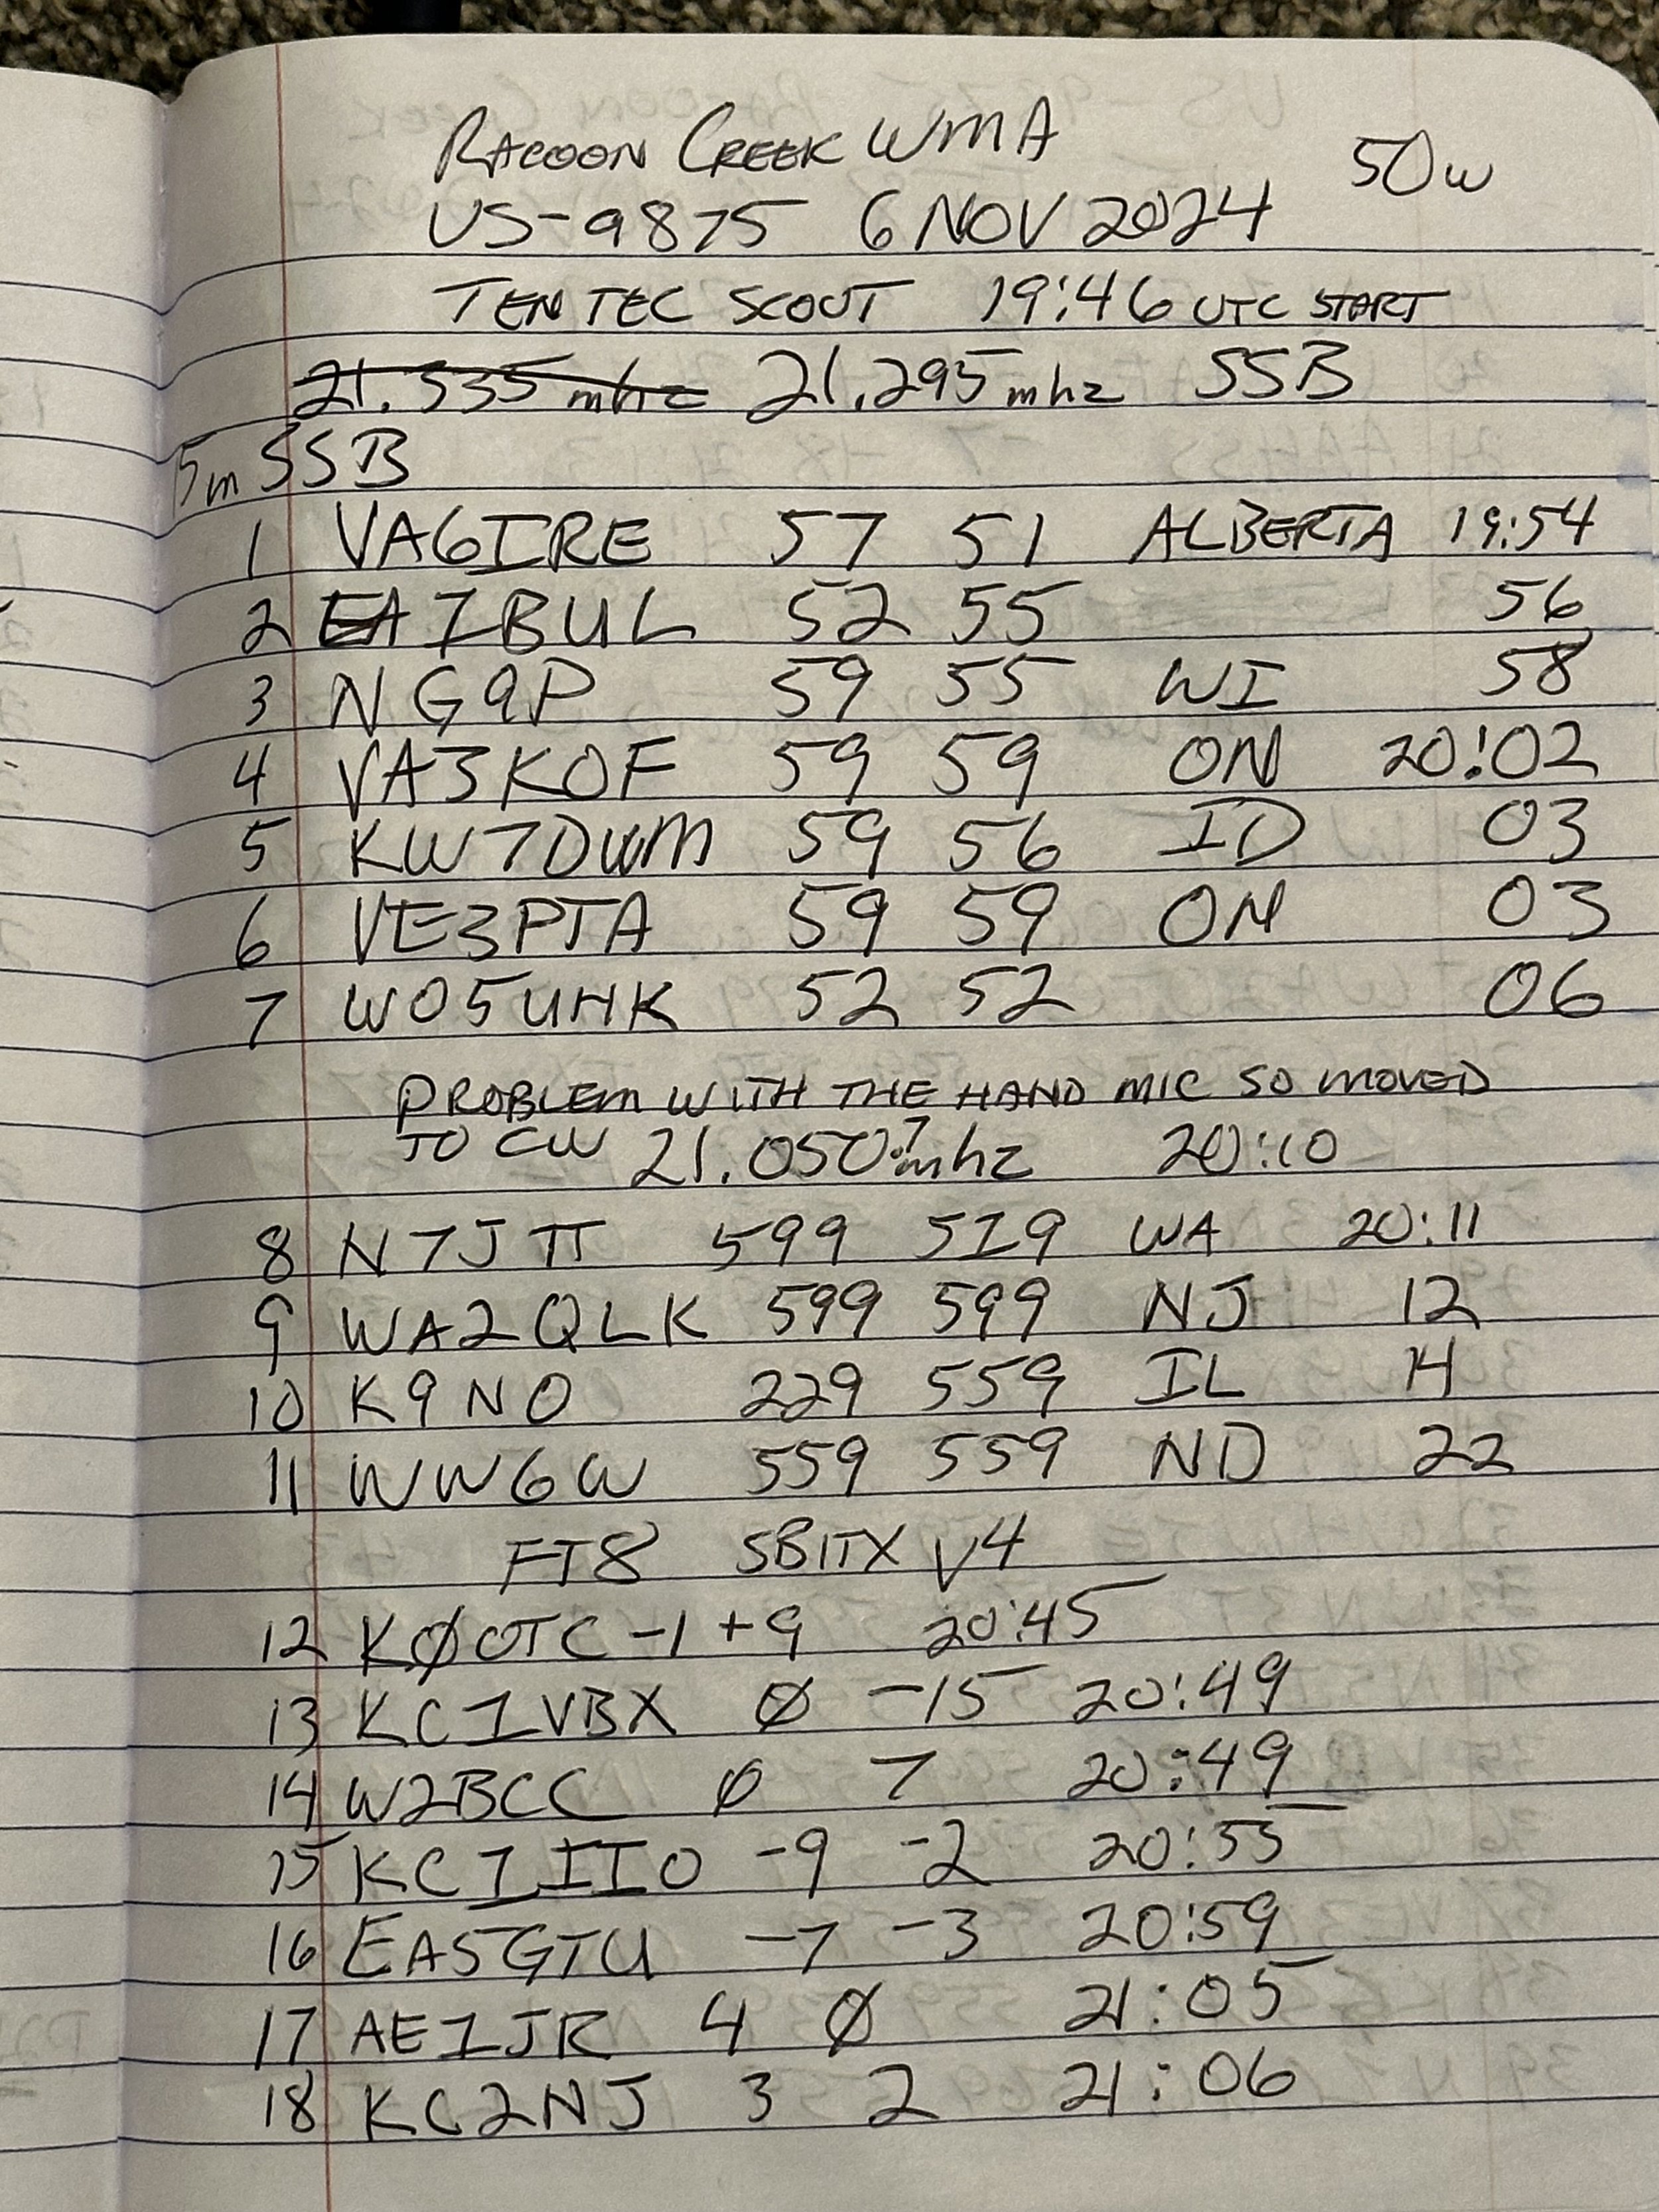 RACOON CREEK WMA 50W
US-9875 6 NOV 2024
TEN TEC SCOUT 19:46 UTC START
21.335 mhz 21.295 mhz SSB
15m SSB
1 VA6IRE 57 51 ALBERTA 19:54
2 EA7BUL 52 55 56
3 NG9P 59 55 WI 58
4 VA3KOF 59 59 ON 20:02
5 KW7DWM 59 56 ID 03
6 VE3PTA 59 59 ON 03
7 WO5UHK 52 52 06
PROBLEM WITH THE HAND MIC SO MOVED
TO CW 21.050.7 mhz 20:10
8 N7JTT 599 519 WA 20:11
9 WA2QLK 599 599 NJ 12
10 K9NO 229 559 IL 14
11 WW6W 559 559 ND 22
FT8 SBITX V4
12 KØOTC -1 +9 20:45
13 KC1VBX Ø -15 20:49
14 W2BCC Ø 7 20:49
15 KC1IIO -9 -2 20:55
16 EA5GTU -7 -3 20:59
17 AE1JR 4 Ø 21:05
18 KC2NJ 3 2 21:06